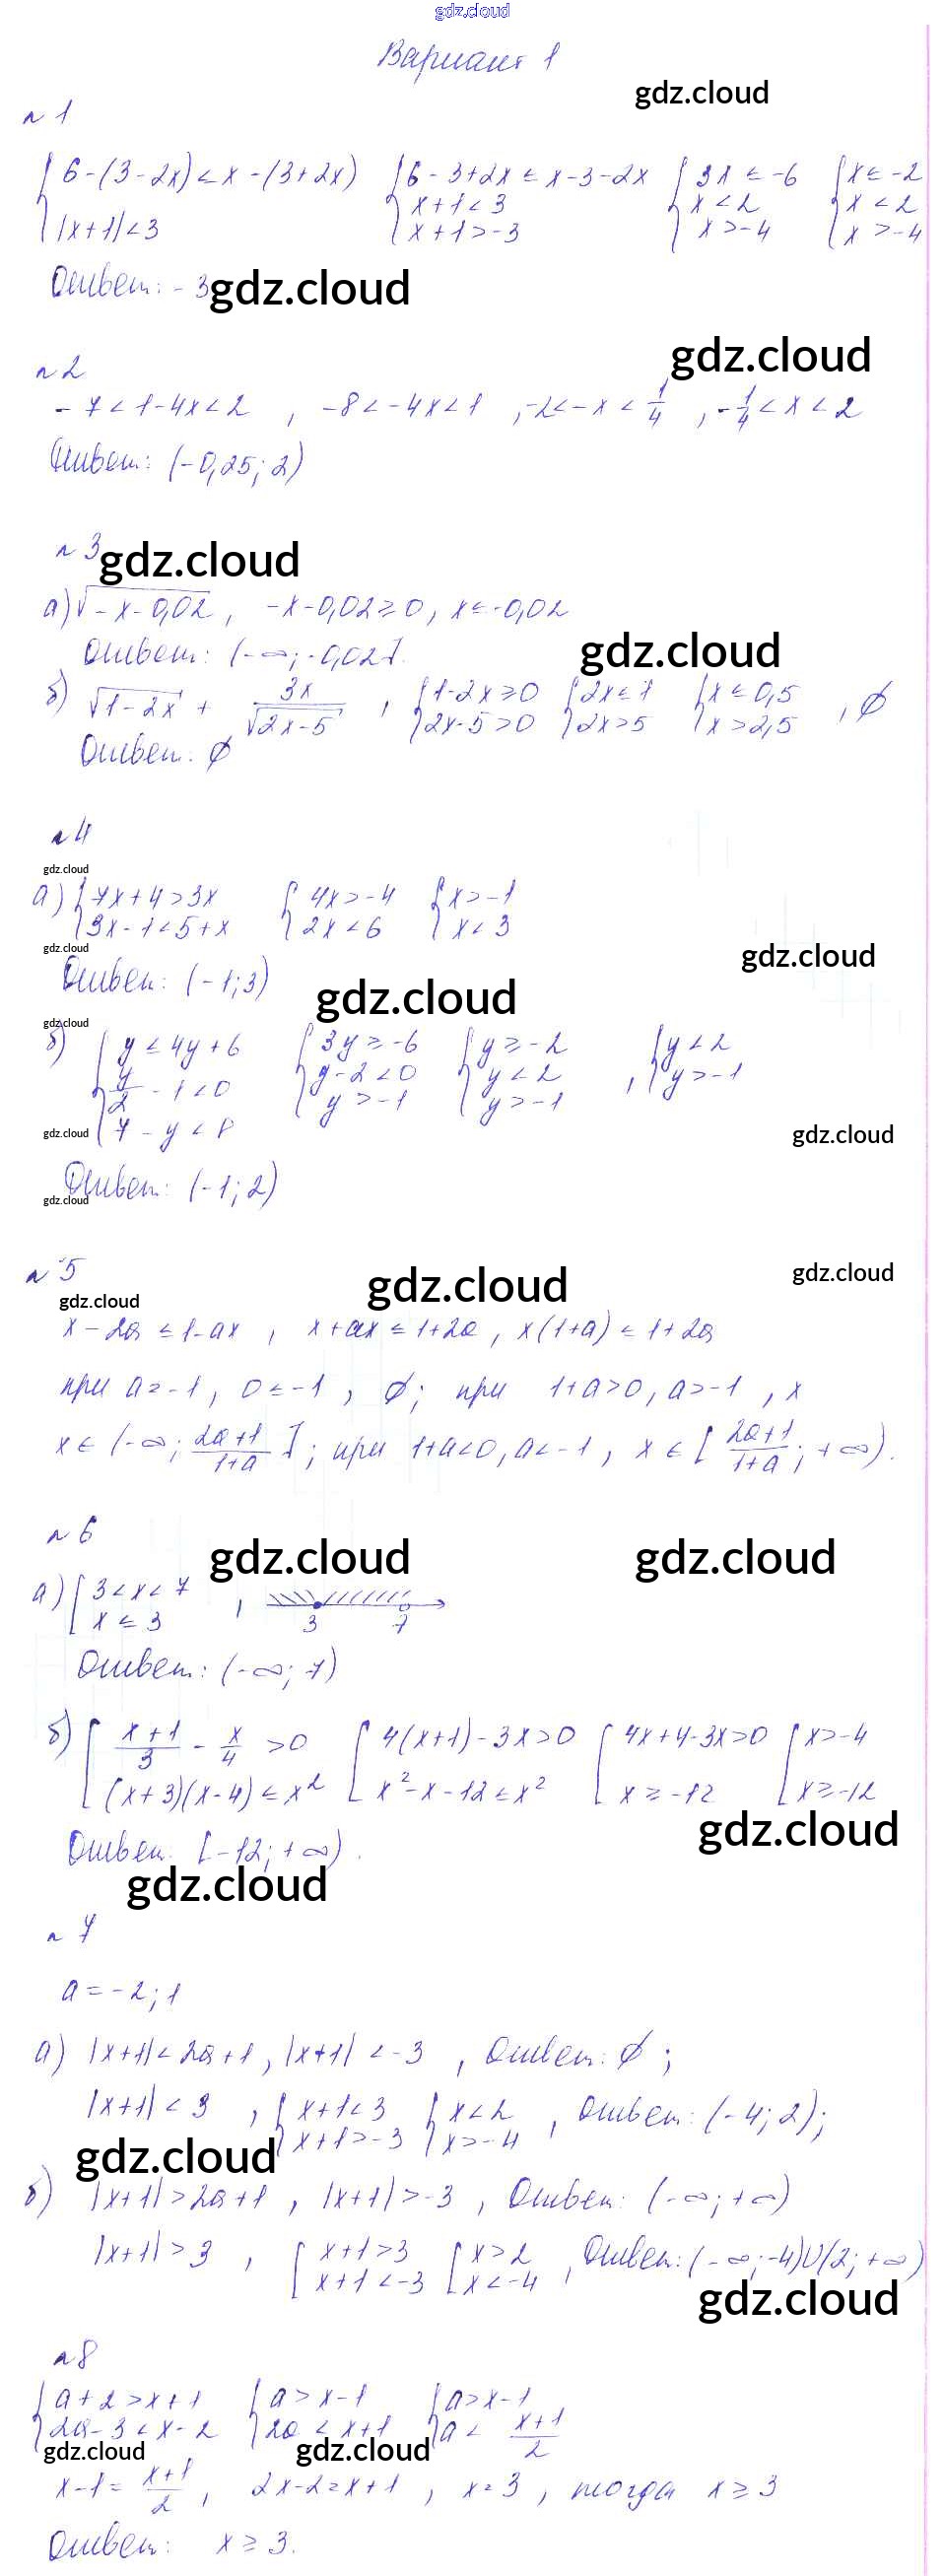 gdz.cloud
Вариант 1
gdz.cloud
№1
{ 6-(3-2x) < x-(3+2x) { 6-3+2x ≤ x-3-2x { 3x ≤ -6 { x ≤ -2
|x+1| < 3 x+1 < 3 x < 2 x < 2
x+1 > -3 x > -4 x > -4
Ответ: -3
gdz.cloud
gdz.cloud
№2
-7 < 1-4x < 2 , -8 < -4x < 1 , -2 < -x < 1/4 , -1/4 < x < 2
Ответ: (-0,25; 2)
№3
gdz.cloud
а) √(-x-0,02) , -x-0,02 ≥ 0, x ≤ -0,02
Ответ: (-∞; -0,02].
gdz.cloud
б) √(1-2x) + 3x/√(2x-5) , { 1-2x ≥ 0 { 2x ≤ 1 { x ≤ 0,5 , ∅
2x-5 > 0 2x > 5 x > 2,5
Ответ: ∅
№4
gdz.cloud
а) { 7x+4 > 3x { 4x > -4 { x > -1
3x-1 < 5+x 2x < 6 x < 3
gdz.cloud
gdz.cloud
Ответ: (-1; 3)
gdz.cloud
gdz.cloud
б) { y ≤ 4y+6 { 3y ≥ -6 { y ≥ -2 , { y < 2
y/2 - 1 < 0 y-2 < 0 y < 2 y > -1
7-y < 8 y > -1 y > -1
gdz.cloud
gdz.cloud
Ответ: (-1; 2)
gdz.cloud
№5
gdz.cloud
gdz.cloud
gdz.cloud
x-2a ≤ 1-ax , x+ax ≤ 1+2a, x(1+a) ≤ 1+2a
при a = -1, 0 ≤ -1 , ∅; при 1+a > 0, a > -1 , x
x ∈ (-∞; (2a+1)/(1+a)]; при 1+a < 0, a < -1, x ∈ [(2a+1)/(1+a); +∞).
№6
gdz.cloud
gdz.cloud
а) [ 3 < x < 7 , 3 7
x ≤ 3
Ответ: (-∞; 7)
б) [ (x+1)/3 - x/4 > 0 [ 4(x+1)-3x > 0 [ 4x+4-3x > 0 [ x > -4
(x+3)(x-4) ≤ x² x²-x-12 ≤ x² x ≥ -12 x ≥ -12
gdz.cloud
Ответ: [-12; +∞).
gdz.cloud
№7
a = -2; 1
а) |x+1| < 2a+1, |x+1| < -3 , Ответ: ∅ ;
|x+1| < 3 , { x+1 < 3 { x < 2 , Ответ: (-4; 2);
x+1 > -3 x > -4
gdz.cloud
б) |x+1| > 2a+1 , |x+1| > -3 , Ответ: (-∞; +∞)
|x+1| > 3 , [ x+1 > 3 [ x > 2 , Ответ: (-∞; -4)∪(2; +∞)
x+1 < -3 x < -4
gdz.cloud
№8
{ a+2 > x+1 { a > x-1 { a > x-1
2a-3 < x-2 2a < x+1 a < (x+1)/2
gdz.cloud
gdz.cloud
x-1 = (x+1)/2 , 2x-2 = x+1 , x = 3 , тогда x ≥ 3
Ответ: x ≥ 3.